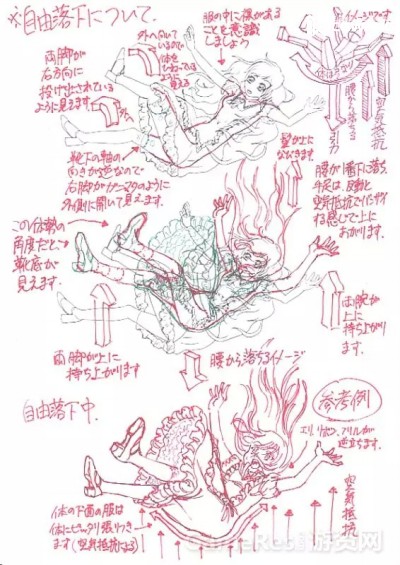 ※自由落下について.
両脚が
右方向に
投げ出されている
ように見えます。
外へ向いて
いるので
体を
ひねっている
ように
見える
服の中に体がある
ことを意識
しましょう
イメージです。
腰から落ちる
引力
空気抵抗
靴下の軸の
向きが
右脚が
ように
外側に開いて見えます。
髪が上に
なびきます。
腰が落下に落ち、
手足は、反動と
空気抵抗で
感じで上に
あがります。
この体勢の
角度だと
靴底が
見えます。
両脚が上に
持ち上がります
両腕が
上に
持ち上がり
ます。
腰から落ちるイメージ
自由落下中.
参考例
エリ、リボン、フリルが
逆立ちます。
体の下面の服は
体にピッタリ張りつき
ます(空気抵抗による)
空気抵抗
GameRes游资网